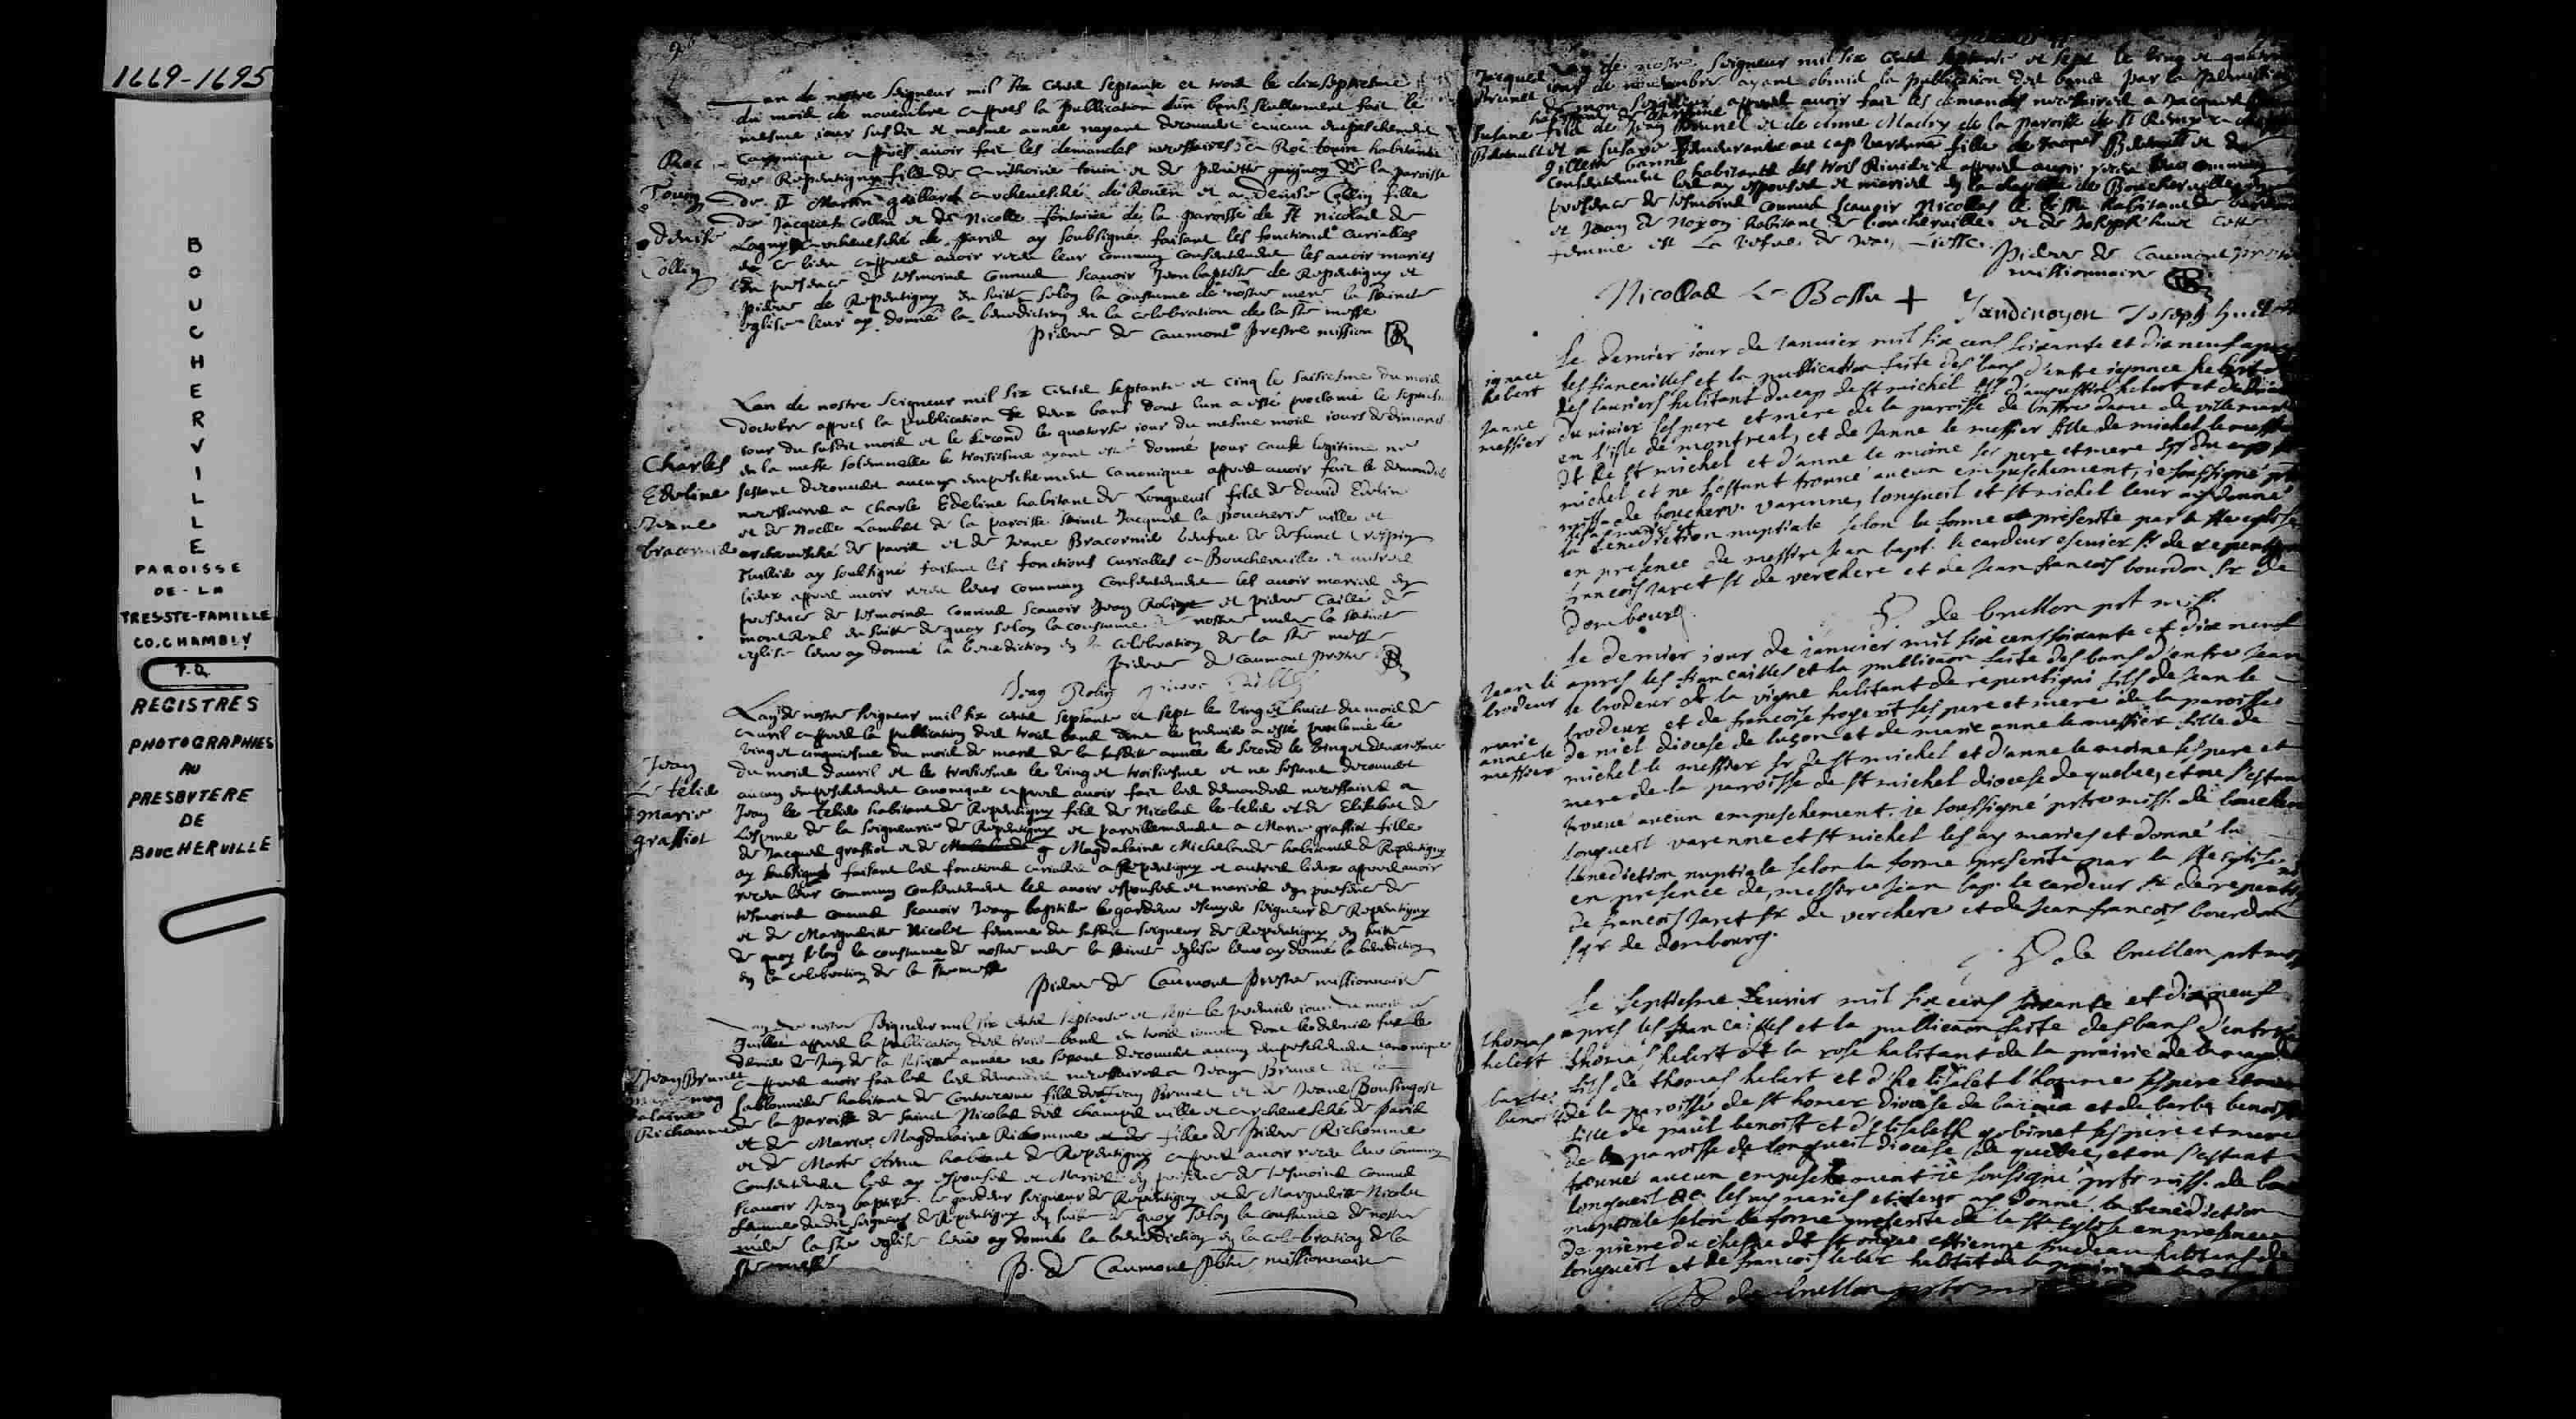 1669-1695
BOUCHERVILLE
PAROISSE
DE-LA
TRES-STE-FAMILLE
CO. CHAMBLY
P.Q.
REGISTRES
PHOTOGRAPHIES
AU
PRESBYTERE
DE
BOUCHERVILLE
Lan de nostre Seigneur mil six cents septante et trois le dix septiesme
du mois de novembre appres la publication dun bans seullement fait le
mesme iour susdit et mesme année nayant decouvert aucun empeschement
Canonique appres avoir fait les demandes necessaires a Roc touin habitant
Roc
de Repentigny fils de Anthoine touin et de de la paroisse
Touin
de St Martin gaillard archevesché de Rouen et a denise Collin fille
de Jacques Collin et de Nicolle fontaine de la paroisse de St nicolas de
denise
Lagny archevesché de paris ay soubsigné faisant les fonctions curialles
Collin
de ce lieu appres avoir receu leur commun consentement les avoir mariés
en presence de tesmoins connus scavoir Jean baptiste de Repentigny et
pierre de Repentigny en suitte selon la coustume de nostre mere la saincte
eglise leur ay donné la benediction en la celebration de la ste messe
pierre de Caumont prestre mission
Lan de nostre seigneur mil six cents septante et cinq le saisiesme du mois
doctobre appres la publication de deux bans dont lun a esté proclamé le
iour du susdit mois et le second le quatorse iour du mesme mois iours de dimanches
en la messe solemnelle le troisiesme ayant esté donné pour cause legitime ne
Charles
sestant decouvert aucuns empeschement canonique appres avoir fait le demandes
Edeline
necessaires a Charle Edeline habitant de Longueuil fils de david Edelin
Jeanne
et de Noelle Lambert de la paroisse sainct Jacques la boucherie ville et
bracornié
archevesché de paris et de Jeane Bracornié veufve de defunct Crespin
Tuillié ay soubsigné faisant les fonctions curialles a Boucherville et autres
lieux appres avoir receu leur commun Consentement les avoir mariés en
presence de tesmoins connus scavoir Jean Robin et pierre Caillé de
montreal en suitte de quoy selon la coustume de nostre mere la saincte
eglise leur ay donné la benediction en la celebration de la ste messe
pierre de Caumont prestre
Jean Robin
Lan de nostre seigneur mil six cents septante et sept le vingt huict du mois de
avril appres la publication des trois bans dont le premier a esté proclamé le
vingt cinquiesme du mois de mars de la susditte année le second le vingt deuxiesme
du mois davril et le troisiesme le vingt troisiesme et ne sestant decouvert
Jean
aucun empeschement canonique appres avoir fait les demandes necessaires a
Le telié
Jean le telié habitant de Repentigny fils de Nicolas le telié et de Elisabet de
marie
Lesprine de la seigneurie de Repentigny et pareillement a Marie graffiot fille
graffiot
de Jacques graffiot et de Magdalaine Michelande habitants de Repentigny
ay soubsigné faisant les fonctions curialles a Repentigny et autres lieux appres avoir
receu leur commun consentement les avoir espousés et mariés en presence de
tesmoins connus scavoir Jean baptiste legardeur escuyer seigneur de Repentigny
et de Marguerite Nicolet femme du susdit seigneur de Repentigny en suitte
de quoy selon la coustume de nostre mere la saincte eglise leur ay donné la benediction
en la celebration de la ste messe
Pierre de Caumont prestre missionnaire
Lan de nostre Seigneur mil six cents septante et sept le premier iour du mois de
Juillet appres la publication des trois bans en trois iours dont le dernier fut le
dernier de Juin de la susditte année ne sestant decouvert aucun empeschement canonique
Jean Brunet
appres avoir fait les demandes necessaires a Jean Brunet
Sablonnier habitant de Contrecoeur fils de Jean Brunet et de Jeane Bousingost
de la paroisse de sainct Nicolas des champs ville et archevesché de Paris
Richaume
et de Marie Magdalaine Richomme fille de Pierre Richomme
et de Marte Arnu habitant de Repentigny appres avoir receu leur commun
Consentement les ay espousés et mariés en presence de tesmoins connus
scavoir Jean baptiste le gardeur seigneur de Repentigny et de Marguerite Nicolet
femme dudit seigneur de Repentigny en suitte de quoy selon la coustume de nostre
mere la ste eglise leur ay donné la benediction en la celebration de la
ste messe
P. de Caumont pbtre missionnaire
Jacques
Lan de nostre Seigneur mil six cents septante et sept le vingt et
Brunet
iour de novembre ayant obtenu la publication des bans par la permission
de mon seigneur appres avoir fait les demandes necessaires a Jacques
habitant de varenne
Susane
fils de Jean Brunel et de Anne Madry de la paroisse de St Remy
et a susane demeurante au cap varenne fille de Jacques et de
Gillette banne
Consentement habitants des trois Rivieres appres avoir receu leur commun
les ay espousés et mariés en la chapelle de Boucherville
presence de tesmoins connus scavoir Nicolas le bossu habitant de
et Jean de Noyon habitant de boucherville et de Joseph huet cette
femme est la vefve de Jean
Pierre de Caumont
missionnaire
Nicollas Le Bossu + Jandenoyon Joseph huet
Le dernier iour de Ianvier mil six cens soixante et dix neuf apres
ignace
hebert
les fiancailles et la publication faite des bans d'entre ignace hebert
des lauriers habitant du cap de st michel fils d'augustin hebert et de
Janne
messier
du vivier ses pere et mere de la paroisse de nostre dame de ville marie
en l'isle de montreal, et de Janne le messier fille de michel le messier
Sr de st michel et d'anne le moine ses pere et mere
michel et ne s'estant trouvé aucun empeschement, ie soussigné
miss. de boucherv. varenne, longueil et st michel leur ay donné
la benediction nuptiale selon la forme prescrite par la ste eglise
en presence de messire Jean bapt. le cardeur escuier sr de repentigny
francois Jaret sr de verchere et de Jean francois bourdon sr de
dombourg.
P. de brullon prt miss.
Le dernier iour de ianvier mil six cens soixante et dix neuf
Jean le
brodeur
apres les fiancailles et la publication faite des bans d'entre Jean
le brodeur dt la vigne habitant de repentigni fils de Jean le
brodeur et de francoise ses pere et mere de la paroisse
marie
anne le
messier
de niel diocese de luçon et de marie anne le messier fille de
michel le messier sr de st michel et d'anne le moine ses pere et
mere de la paroisse de st michel diocese de quebec, et ne s'estant
trouvé aucun empeschement, ie soussigné prtre miss. de boucherv
longueil varenne et st michel les ay mariés et donné la
benediction nuptiale selon la forme prescrite par la ste eglise
en presence de messire Jean bap. le cardeur sr de repentigny
de francois Jaret sr de verchere et de Jean francois bourdon
sr de dombourg.
P. de brullon prt miss
Le septiesme fevrier mil six cens soixante et dix neuf
thomas
hebert
apres les fiancailles et la publication faite des bans d'entre
thomas hebert dt la rose habitant de la prairie de la magd.
fils de thomas hebert et d'helisabet l'homme ses pere et mere
barbe
benoist
de la paroisse de st homer diocese de et de barbe benoist
fille de paul benoist et d'elisabeth gobinet ses pere et mere
de la paroisse de longueil diocese de quebec, et ne s'estant
trouvé aucun empeschement ie soussigné prtr miss. de bou
longueil &c. les ay mariés et leur ay donné la benediction
nuptiale selon la forme prescrite de la ste eglise en presence
de pierre du chesne dt st onge estienne trudeau habitans de
longueil et de francois leber habitant de la prairie
P. de brullon prtr miss